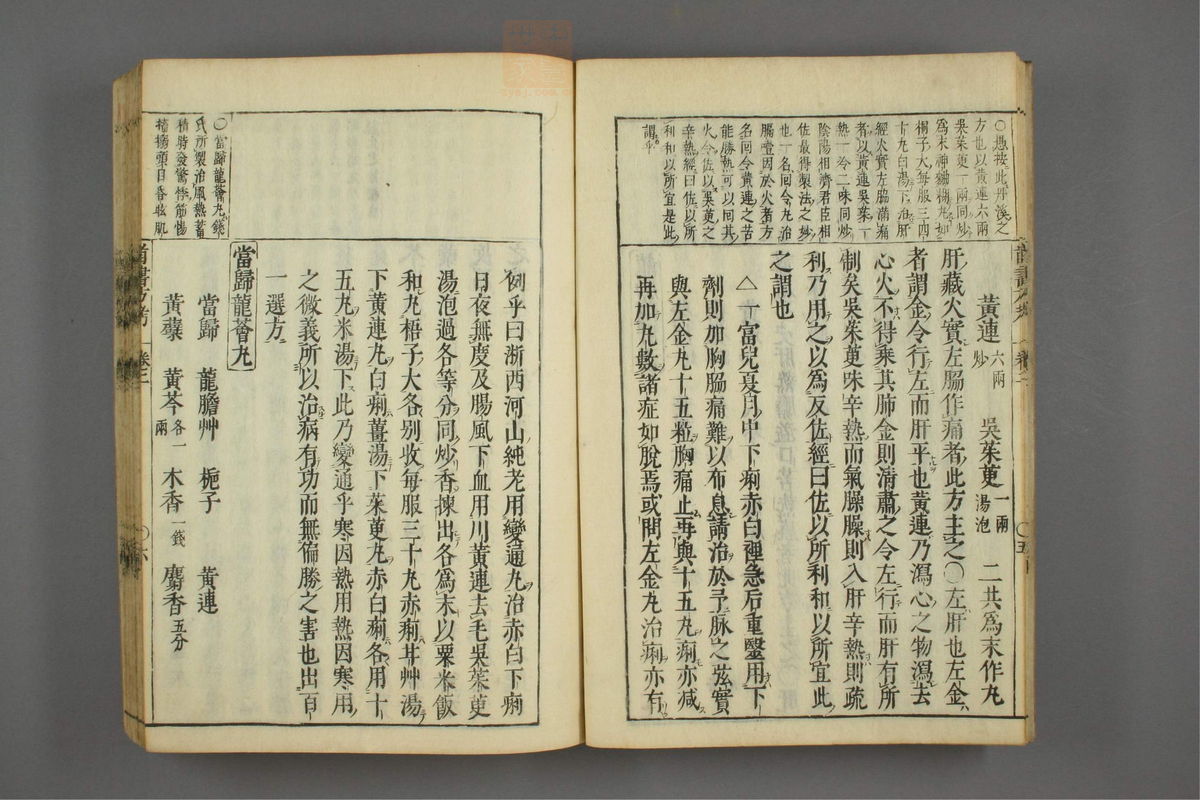 ○愚按此丹溪之
方也以黃連六兩
吳茱萸一兩同炒
爲末神麯糊丸如
梧子大每服三四
十丸白湯下治肝
經火實左脇滿痛
者以黃連吳茱一
熱一冷二味同炒
陰陽相濟君臣相
佐最得製法之妙
也一名回令丸治
膈壹因於火者方
名回令黄連之苦
能勝熱可以回其
火令佐以吳萸之
辛熱經曰佐以所
利和以所宜是此
謂乎
黃連六兩炒 吳茱萸一兩湯泡 二共爲末作丸
肝藏火實左脇作痛者此方主之○左肝也左金
者謂金令行左而肝平也黃連乃瀉心之物瀉去
心火不得乘其肺金則清肅之令左行而肝有所
制矣吳茱萸味辛熱而氣臊臊則入肝辛熱則疏
利乃用之以爲反佐經曰佐以所利和以所宜此
之謂也
△一富兒夏月中下痢赤白裡急后重醫用下
劑則加胸脇痛難以布息請治於予脉之弦實
與左金丸十五粒胸痛止再與十五丸痢亦减
再加丸數諸症如脫焉或問左金丸治痢亦有
例乎曰浙西河山純老用變通丸治赤白下痢
日夜無度及腸風下血用川黃連去毛吳茱萸
湯泡過各等分同炒香揀出各爲末以粟米飯
和丸梧子大各别收每服三十丸赤痢甘艸湯
下黃連丸白痢薑湯下茱萸丸赤白痢各用十
五丸米湯下此乃變通乎寒因熱用熱因寒用
之微義所以治病有功而無偏勝之害也出百
一選方
○當歸龍薈丸錢
氏所製治風熱蓄
積時發驚悸筋惕
搐搦頭目昏眩肌
當歸龍薈丸
當歸 龍膽艸 梔子 黃連
黃蘗 黃芩各一兩 木香一錢 麝香五分
卷三
○六